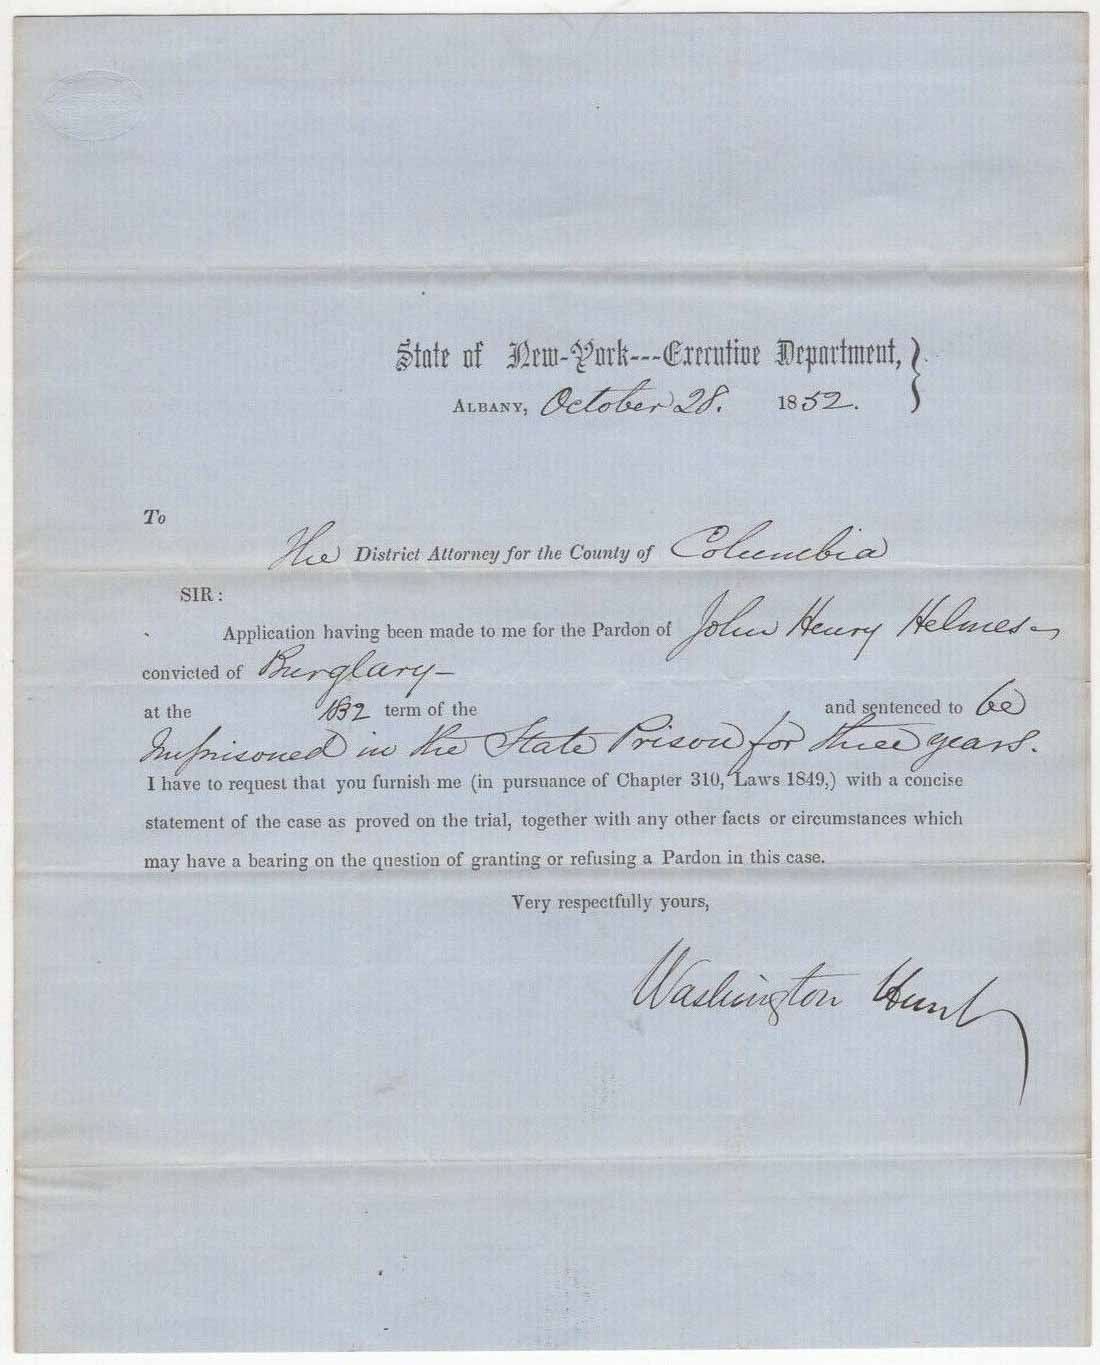 State of New-York---Executive Department,
ALBANY, October 28. 1852.
To
The District Attorney for the County of Columbia
SIR:
Application having been made to me for the Pardon of John Henry Helmes
convicted of Burglary—
at the 1852 term of the and sentenced to be
Imprisoned in the State Prison for three years.
I have to request that you furnish me (in pursuance of Chapter 310, Laws 1849,) with a concise
statement of the case as proved on the trial, together with any other facts or circumstances which
may have a bearing on the question of granting or refusing a Pardon in this case.
Very respectfully yours,
Washington Hunt